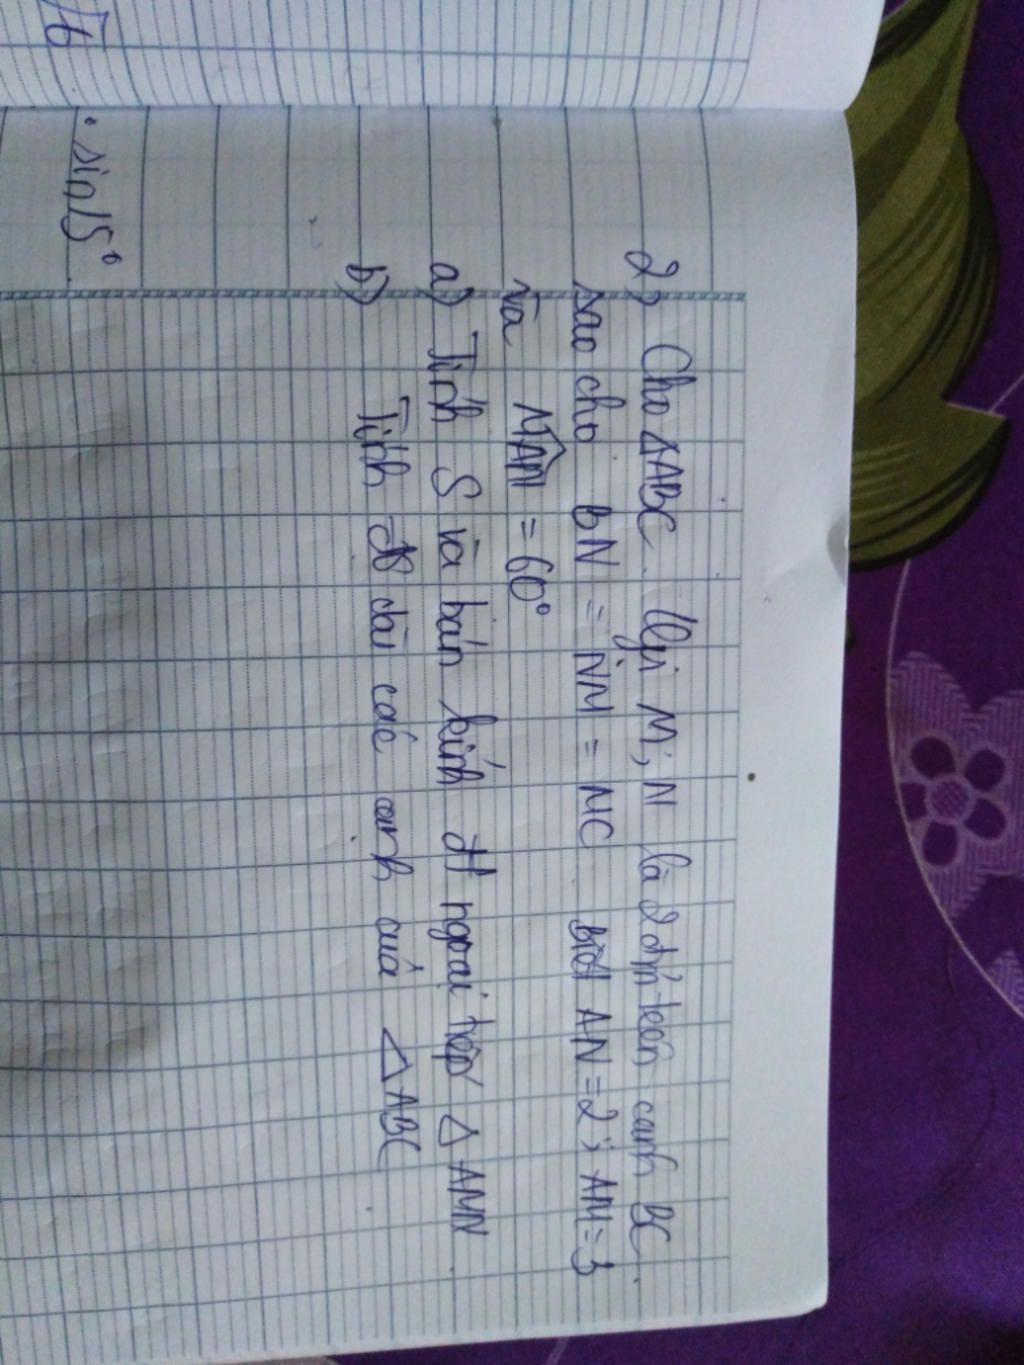 2) Cho △ABC. Gọi M; N là 2 đm̉ trên cạnh BC
sao cho BN = NM = MC biết AN = 2; AM = 3
và MAN = 60°
a) Tính S và bán kính đt ngoại tiếp △ AMN
b) Tính độ dài các cạnh của △ ABC
• sin15°
√6